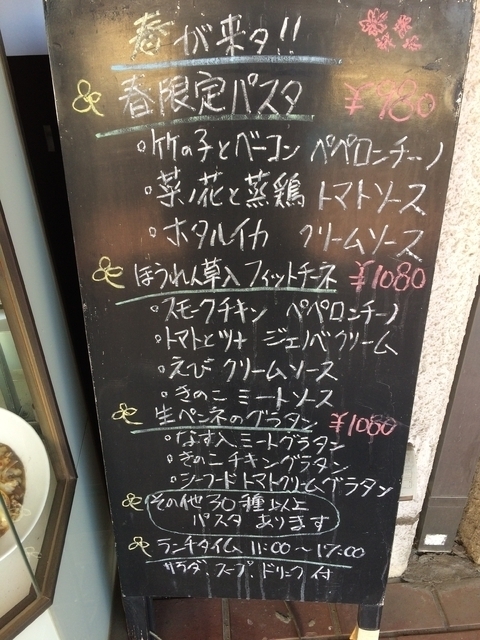 春が来タ!!
春限定パスタ ¥980
・竹の子とベーコン ペペロンチーノ
・菜ノ花と蒸鶏 トマトソース
・ホタルイカ クリームソース
ほうれん草入フィットチーネ ¥1080
・スモークチキン ペペロンチーノ
・トマトとツナ ジェノベクリーム
・えび クリームソース
・きのこ ミートソース
生ペンネのグラタン ¥1080
・なす入ミートグラタン
・きのこチキングラタン
・シーフードトマトクリームグラタン
その他30種以上
パスタあります
ランチタイム 11:00〜17:00
サラダ、スープ、ドリンク付